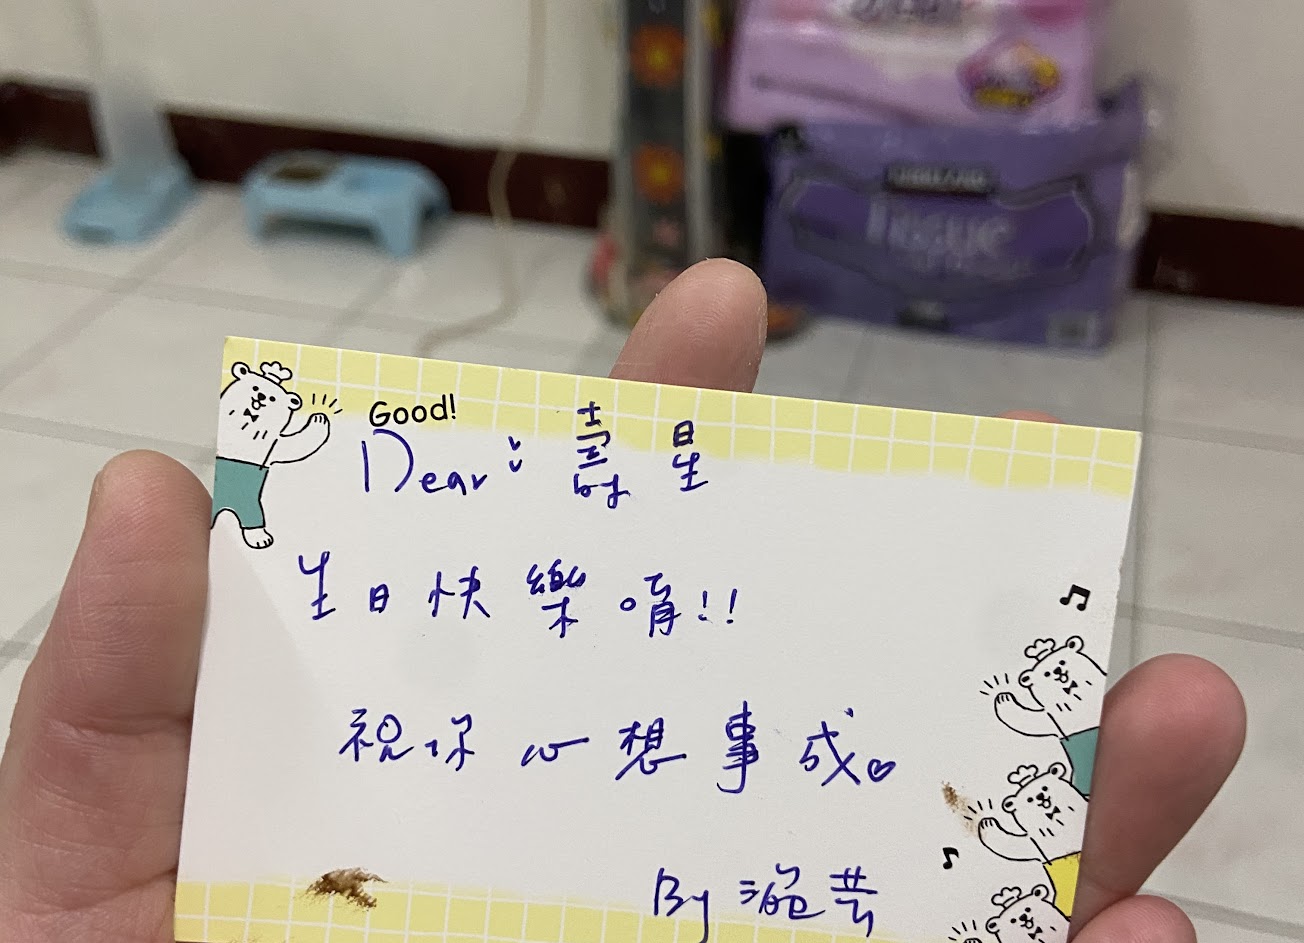 Good!
Dear: 壽星
生日快樂唷!!
祝你心想事成♡
By 渝芸
Tissue